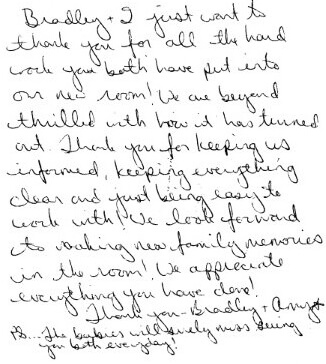 Bradley + I just want to
thank you for all the hard
work you both have put into
our new room! We are beyond
thrilled with how it has turned
out. Thank you for keeping us
informed, keeping everything
clean and just being easy to
work with! We look forward
to making new family memories
in the room! We appreciate
everything you have done!
Thank you - Bradley + Amy
PS... The babies will surely miss seeing
you both everyday!